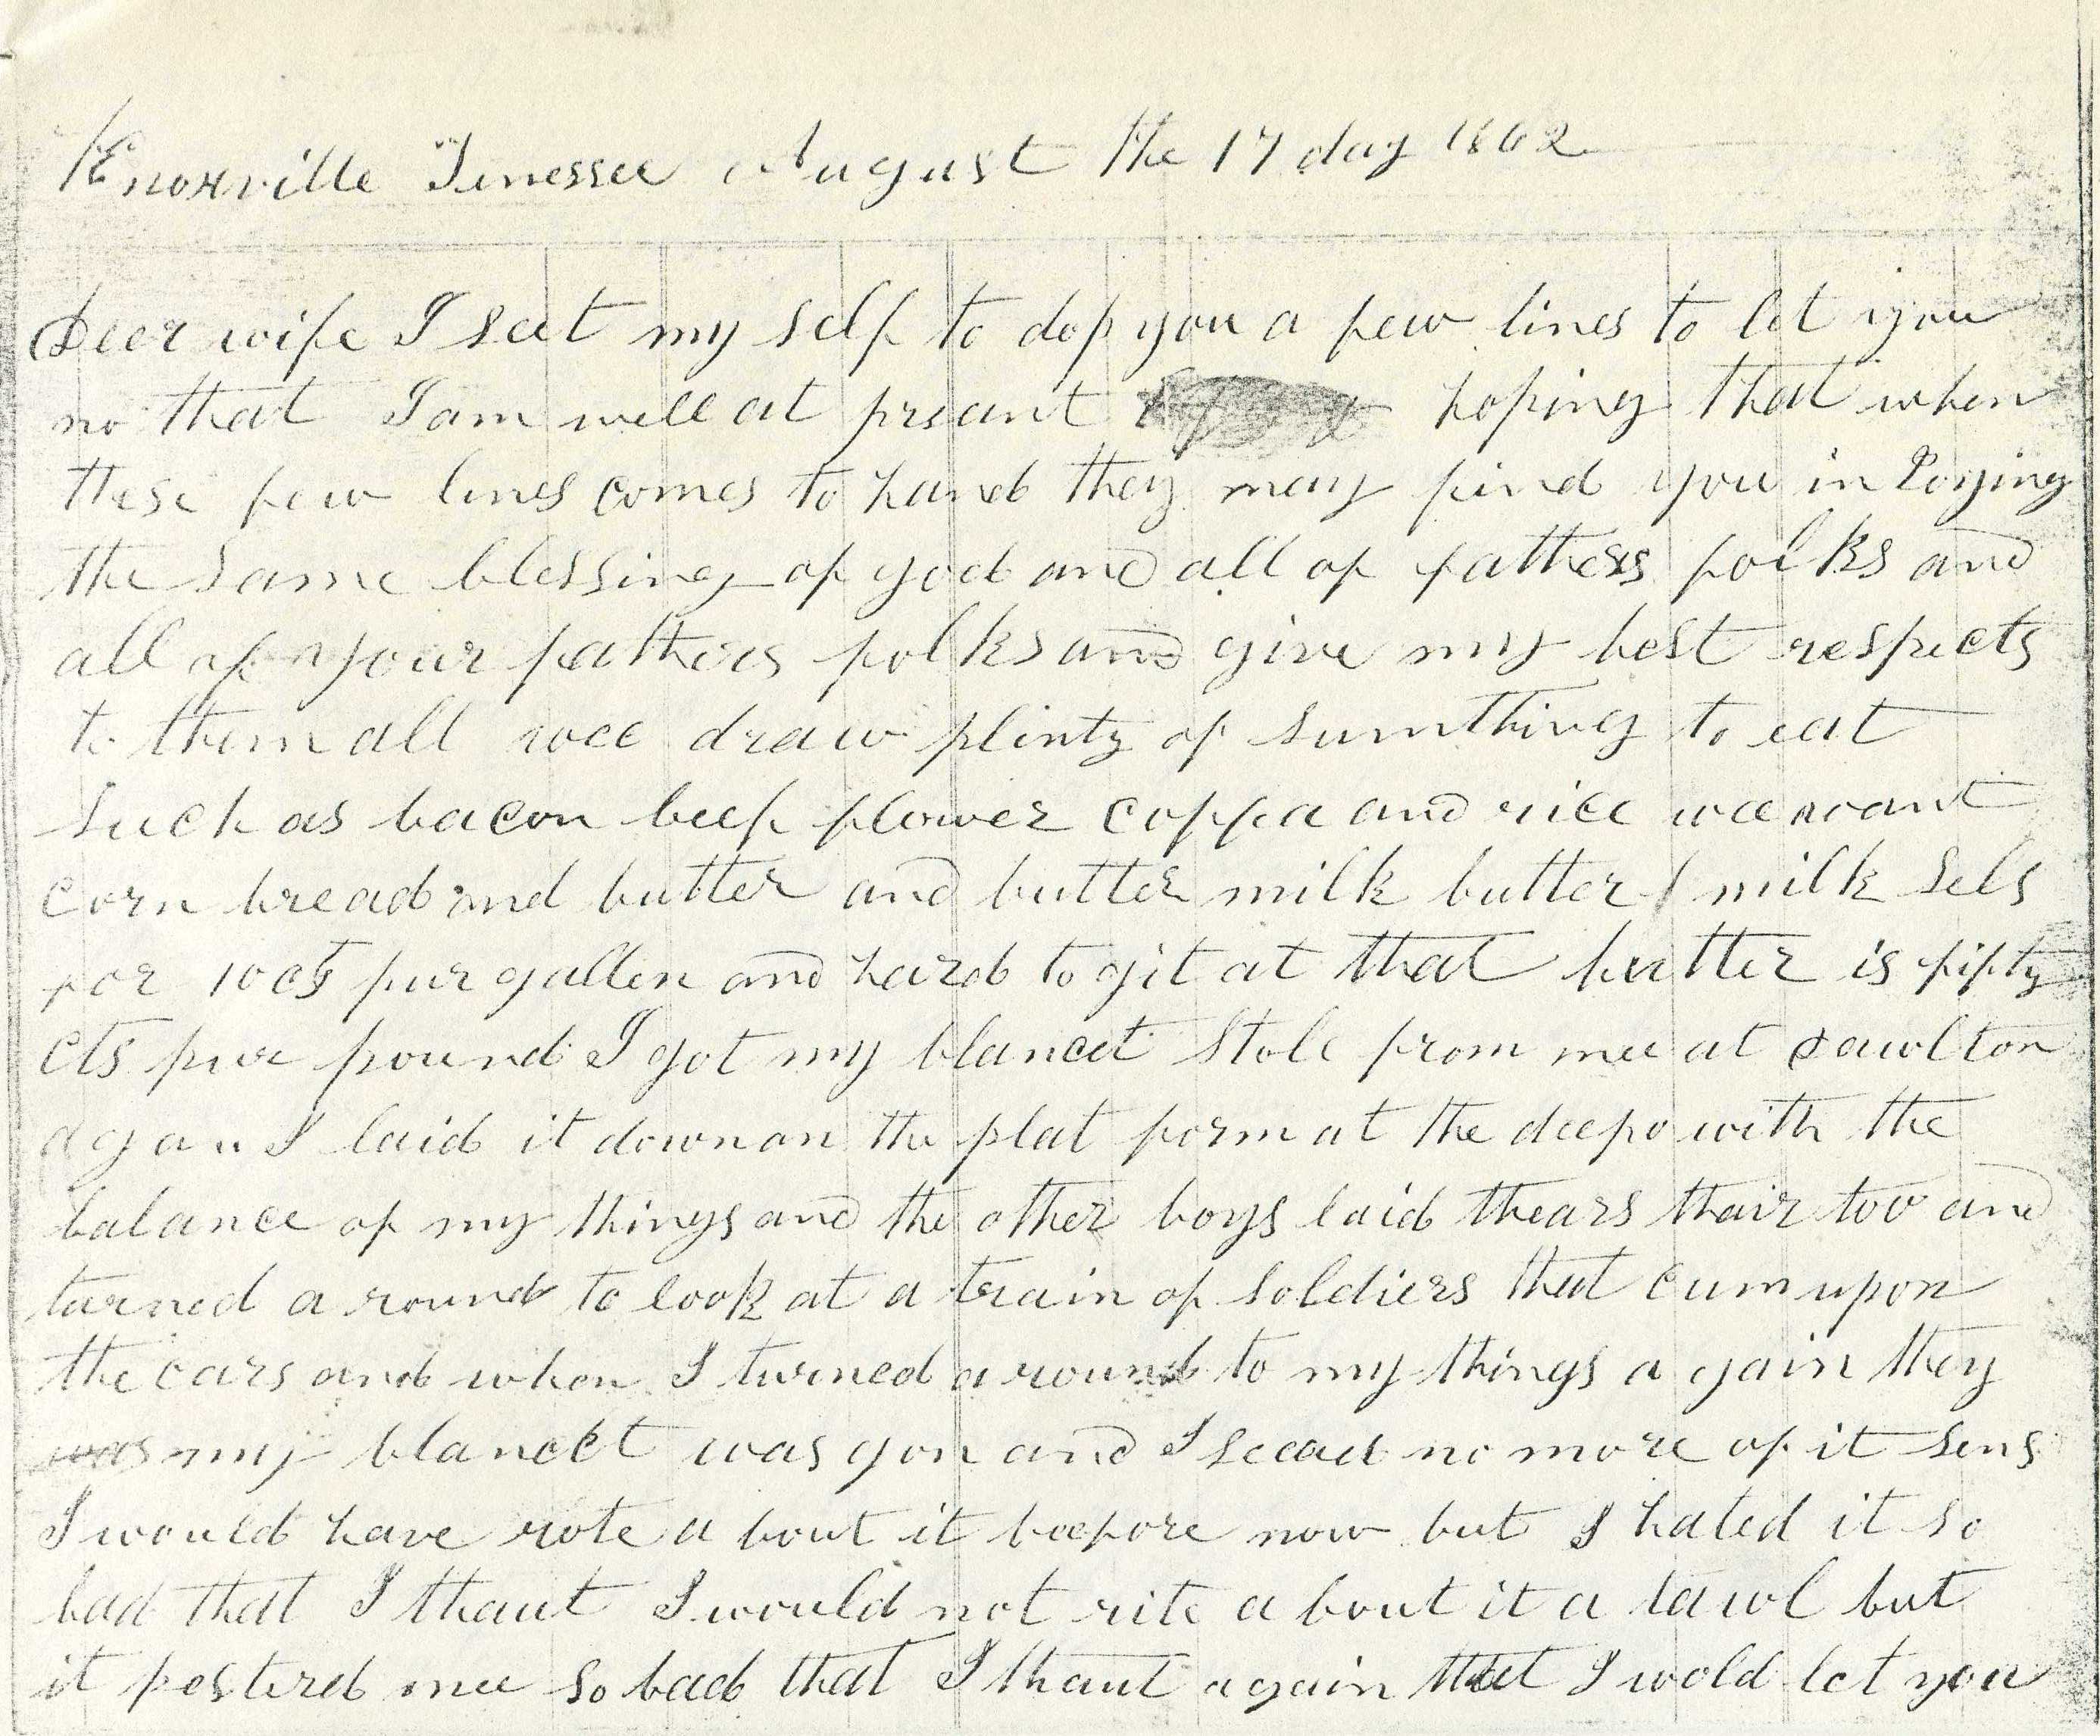 Knoxville Tinessee August the 17 day 1862
Deer wife I seet my self to dop you a few lines to let you
no that I am well at preant hoping that when
these few lines comes to hand they may find you in Joying
the same blessing of god and all of fathers folks and
all of your fathers folks and give my best respects
to them all wee draw plinty of sumthing to eat
such as bacon beef flower coffa and rice wee want
corn bread and butter and butter milk butter milk sels
for 10cts pur gallen and hard to git at that butter is fifty
cts pur pound I got my blancet stole from mee at dawlton
I laid it down on the plat form at the deepo with the
balance of my things and the other boys laid thears thair too and
turned a round to look at a train of soldiers that cum upon
the cars and when I turned a round to my things a gain they
was my blancet was gon and I seead no more of it sens
I would have rote a bout it beefore now but I hated it so
bad that I thaut I would not rite a bout it a tawl but
it pestered mee so bad that I thaut again that I wold let you